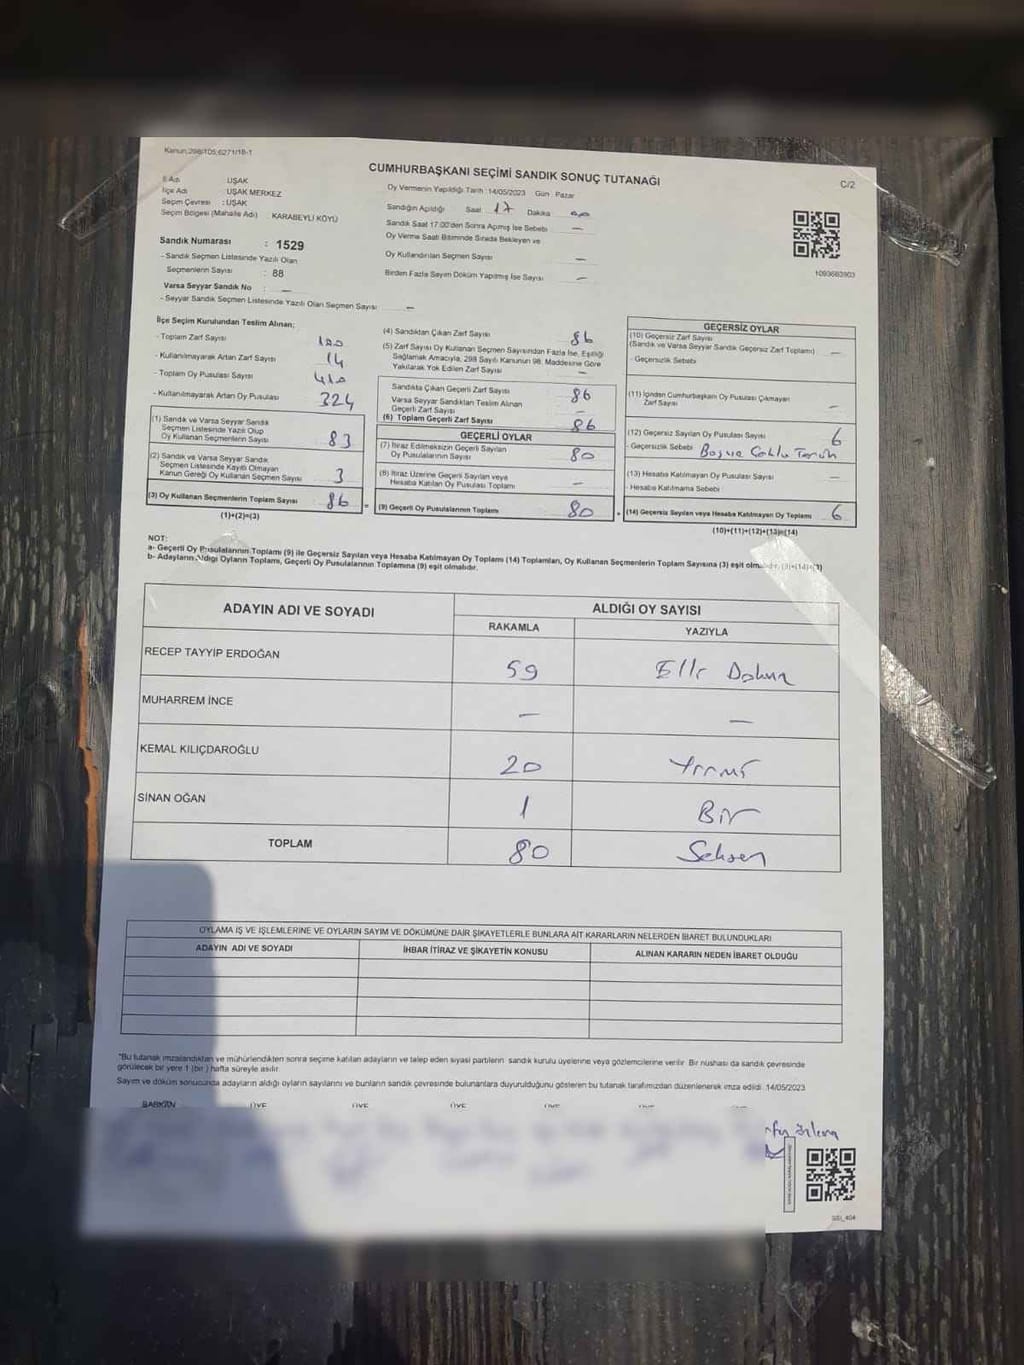 Kanun:298/105;6271/18-1
CUMHURBAŞKANI SEÇİMİ SANDIK SONUÇ TUTANAĞI
C/2
İl Adı UŞAK
İlçe Adı UŞAK MERKEZ
Seçim Çevresi : UŞAK
Seçim Bölgesi (Mahalle Adı) KARABEYLİ KÖYÜ
Sandık Numarası : 1529
- Sandık Seçmen Listesinde Yazılı Olan
Seçmenlerin Sayısı : 88
Varsa Seyyar Sandık No : —
- Seyyar Sandık Seçmen Listesinde Yazılı Olan Seçmen Sayısı —
Oy Vermenin Yapıldığı Tarih :14/05/2023 Gün : Pazar
Sandığın Açıldığı Saat 17 Dakika 00
Sandık Saat 17:00'den Sonra Açımış İse Sebebi —
Oy Verme Saati Bitiminde Sırada Bekleyen ve
Oy Kullandırılan Seçmen Sayısı —
Birden Fazla Sayım Döküm Yapılmış İse Sayısı —
1093683903
İlçe Seçim Kurulundan Teslim Alınan;
- Toplam Zarf Sayısı 100
- Kullanılmayarak Artan Zarf Sayısı 14
- Toplam Oy Pusulası Sayısı 410
- Kullanılmayarak Artan Oy Pusulası 324
(1) Sandık ve Varsa Seyyar Sandık
Seçmen Listesinde Yazılı Olup
Oy Kullanan Seçmenlerin Sayısı 83
(2) Sandık ve Varsa Seyyar Sandık
Seçmen Listesinde Kayıtlı Olmayan
Kanun Gereği Oy Kullanan Seçmen Sayısı 3
(3) Oy Kullanan Seçmenlerin Toplam Sayısı 86
(1)+(2)=(3)
(4) Sandıktan Çıkan Zarf Sayısı 86
(5) Zarf Sayısı Oy Kullanan Seçmen Sayısından Fazla İse, Eşitliği
Sağlamak Amacıyla, 298 Sayılı Kanunun 98. Maddesine Göre
Yakılarak Yok Edilen Zarf Sayısı —
Sandıkta Çıkan Geçerli Zarf Sayısı 86
Varsa Seyyar Sandıktan Teslim Alınan
Geçerli Zarf Sayısı —
(6) Toplam Geçerli Zarf Sayısı 86
GEÇERLİ OYLAR
(7) İtiraz Edilmeksizin Geçerli Sayılan
Oy Pusulalarının Sayısı 80
(8) İtiraz Üzerine Geçerli Sayılan veya
Hesaba Katılan Oy Pusulası Toplamı —
(9) Geçerli Oy Pusulalarının Toplamı 80
GEÇERSİZ OYLAR
(10) Geçersiz Zarf Sayısı
(Sandık ve Varsa Seyyar Sandık Geçersiz Zarf Toplamı) —
- Geçersizlik Sebebi
(11) İçinden Cumhurbaşkanı Oy Pusulası Çıkmayan
Zarf Sayısı —
(12) Geçersiz Sayılan Oy Pusulası Sayısı 6
- Geçersizlik Sebebi
(13) Hesaba Katılmayan Oy Pusulası Sayısı —
- Hesaba Katılmama Sebebi
(14) Geçersiz Sayılan veya Hesaba Katılmayan Oy Toplamı 6
(10)+(11)+(12)+(13)=(14)
NOT:
a- Geçerli Oy Pusulalarının Toplamı (9) ile Geçersiz Sayılan veya Hesaba Katılmayan Oy Toplamı (14) Toplamları, Oy Kullanan Seçmenlerin Toplam Sayısına (3) eşit olmalıdır. (9)+(14)=(3)
b- Adayların Aldığı Oyların Toplamı, Geçerli Oy Pusulalarının Toplamına (9) eşit olmalıdır.
ADAYIN ADI VE SOYADI ALDIĞI OY SAYISI
RAKAMLA YAZIYLA
RECEP TAYYİP ERDOĞAN 59 Elli Dokuz
MUHARREM İNCE — —
KEMAL KILIÇDAROĞLU 20 Yirmi
SİNAN OĞAN 1 Bir
TOPLAM 80 Seksen
OYLAMA İŞ VE İŞLEMLERİNE VE OYLARIN SAYIM VE DÖKÜMÜNE DAİR ŞİKAYETLERLE BUNLARA AİT KARARLARIN NELERDEN İBARET BULUNDUKLARI
ADAYIN ADI VE SOYADI İHBAR İTİRAZ VE ŞİKAYETİN KONUSU ALINAN KARARIN NEDEN İBARET OLDUĞU
"Bu tutanak imzalandıktan ve mühürlendikten sonra seçime katılan adayların ve talep eden siyasi partilerin sandık kurulu üyelerine veya gözlemcilerine verilir. Bir nüshası da sandık çevresinde
görülecek bir yere 1 (bir ) hafta süreyle asılır.
Sayım ve döküm sonucunda adayların aldığı oyların sayılarını ve bunların sandık çevresinde bulunanlara duyurulduğunu gösteren bu tutanak tarafımızdan düzenlenerek imza edildi. 14/05/2023
BAŞKAN ÜYE ÜYE ÜYE